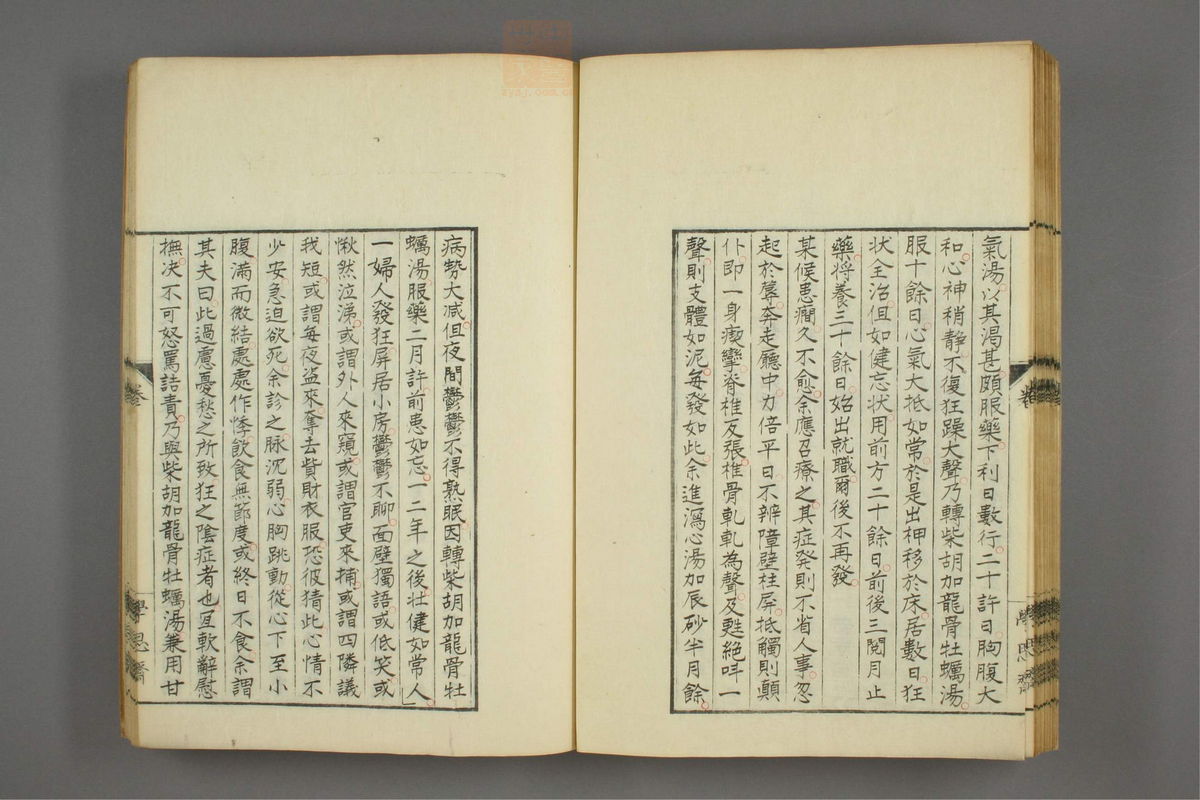 氣湯以其渴甚頗服藥下利日數行二十許日胸腹大
和心神稍静不復狂躁大聲乃轉柴胡加龍骨牡蠣湯
服十餘日心氣大抵如常於是出柙移於床居數日狂
状全治但如健忘状用前方二十餘日前後三閱月止
藥將養三十餘日始出就職爾後不再發
某候患癎久不愈余應召療之其症発則不省人事忽
起於蓐奔走廳中力倍平日不辨障壁柱屏抵觸則顛
仆即一身瘈攣脊椎反張椎骨軋軋為聲及甦絕叫一
聲則支體如泥每發如此余進瀉心湯加辰砂半月餘
病勢大減但夜間鬱鬱不得熟眠因轉柴胡加龍骨牡
蠣湯服藥二月許前患如忘一二年之後壮健如常人
一婦人發狂屏居小房鬱鬱不聊面壁獨語或低笑或
愀然泣涕或謂外人來窺或謂官吏來捕或謂四隣議
我短或謂每夜盜來奪去貲財衣服恐彼猜此心情不
少安急迫欲死余診之脉沉弱心胸跳動從心下至小
腹滿而微結處處作悸飲食無節度或終日不食余謂
其夫曰此過慮憂愁之所致狂之陰症者也宜軟辭慰
撫决不可怒罵詰責乃與柴胡加龍骨牡蠣湯兼用甘
卷
學思齋
八